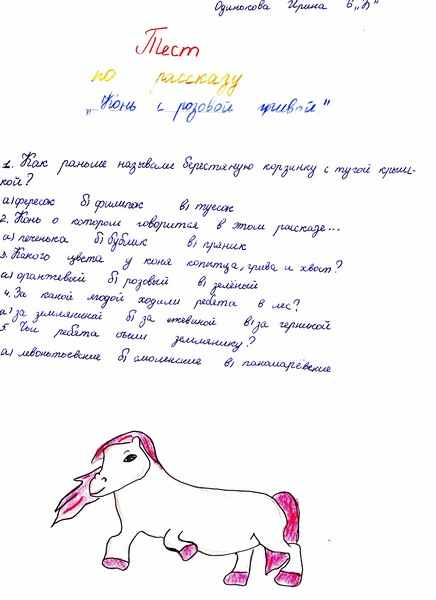 Одинокова Ирина 6 „А"
Тест
по рассказу
„Конь с розовой гривой"
1. Как раньше называли берестяную корзинку с тугой крыш-
кой?
а) ферезок б) филипок в) туесок
2. Конь о котором говорится в этом рассказе...
а) печенька б) бублик в) пряник
3. Какого цвета у коня копытца, грива и хвост?
а) оранжевый б) розовый в) зелёный
4. За какой ягодой ходили ребята в лес?
а) за земляникой б) за ежевикой в) за черникой
5. Чьи ребята съели землянику?
а) левонтьевские б) смоленские в) панамарёвские